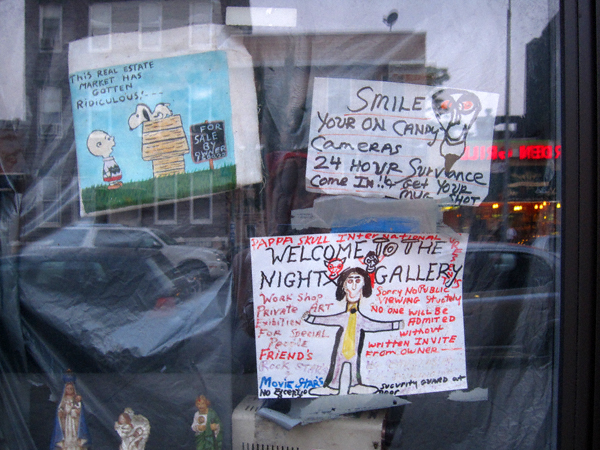 THIS REAL ESTATE
MARKET HAS
GOTTEN
RIDICULOUS!---
FOR
SALE
BY
OWNER
SMILE
YOUR ON CANDY
CAMERAS
24 HOUR SURVANCE
COME IN!.& GET YOUR
MUR SHOT
PAPPA SKULL INTERNATIONAL
WELCOME TO THE
NIGHT GALLERY
WORK SHOP
PRIVATE ART
EXIBITION
FOR SPECIAL
PEOPLE
FRIEND'S
ROCK STAR'S
MOVIE STAR'S
NO EXCEPTIO
SORRY NO PUBLIC
VIEWING STRICTELY
NO ONE WILL BE
ADMITED
WITHOUT
WRITTEN INVITE
FROM OWNER---
SUCURITY GUARD AT
DOOR